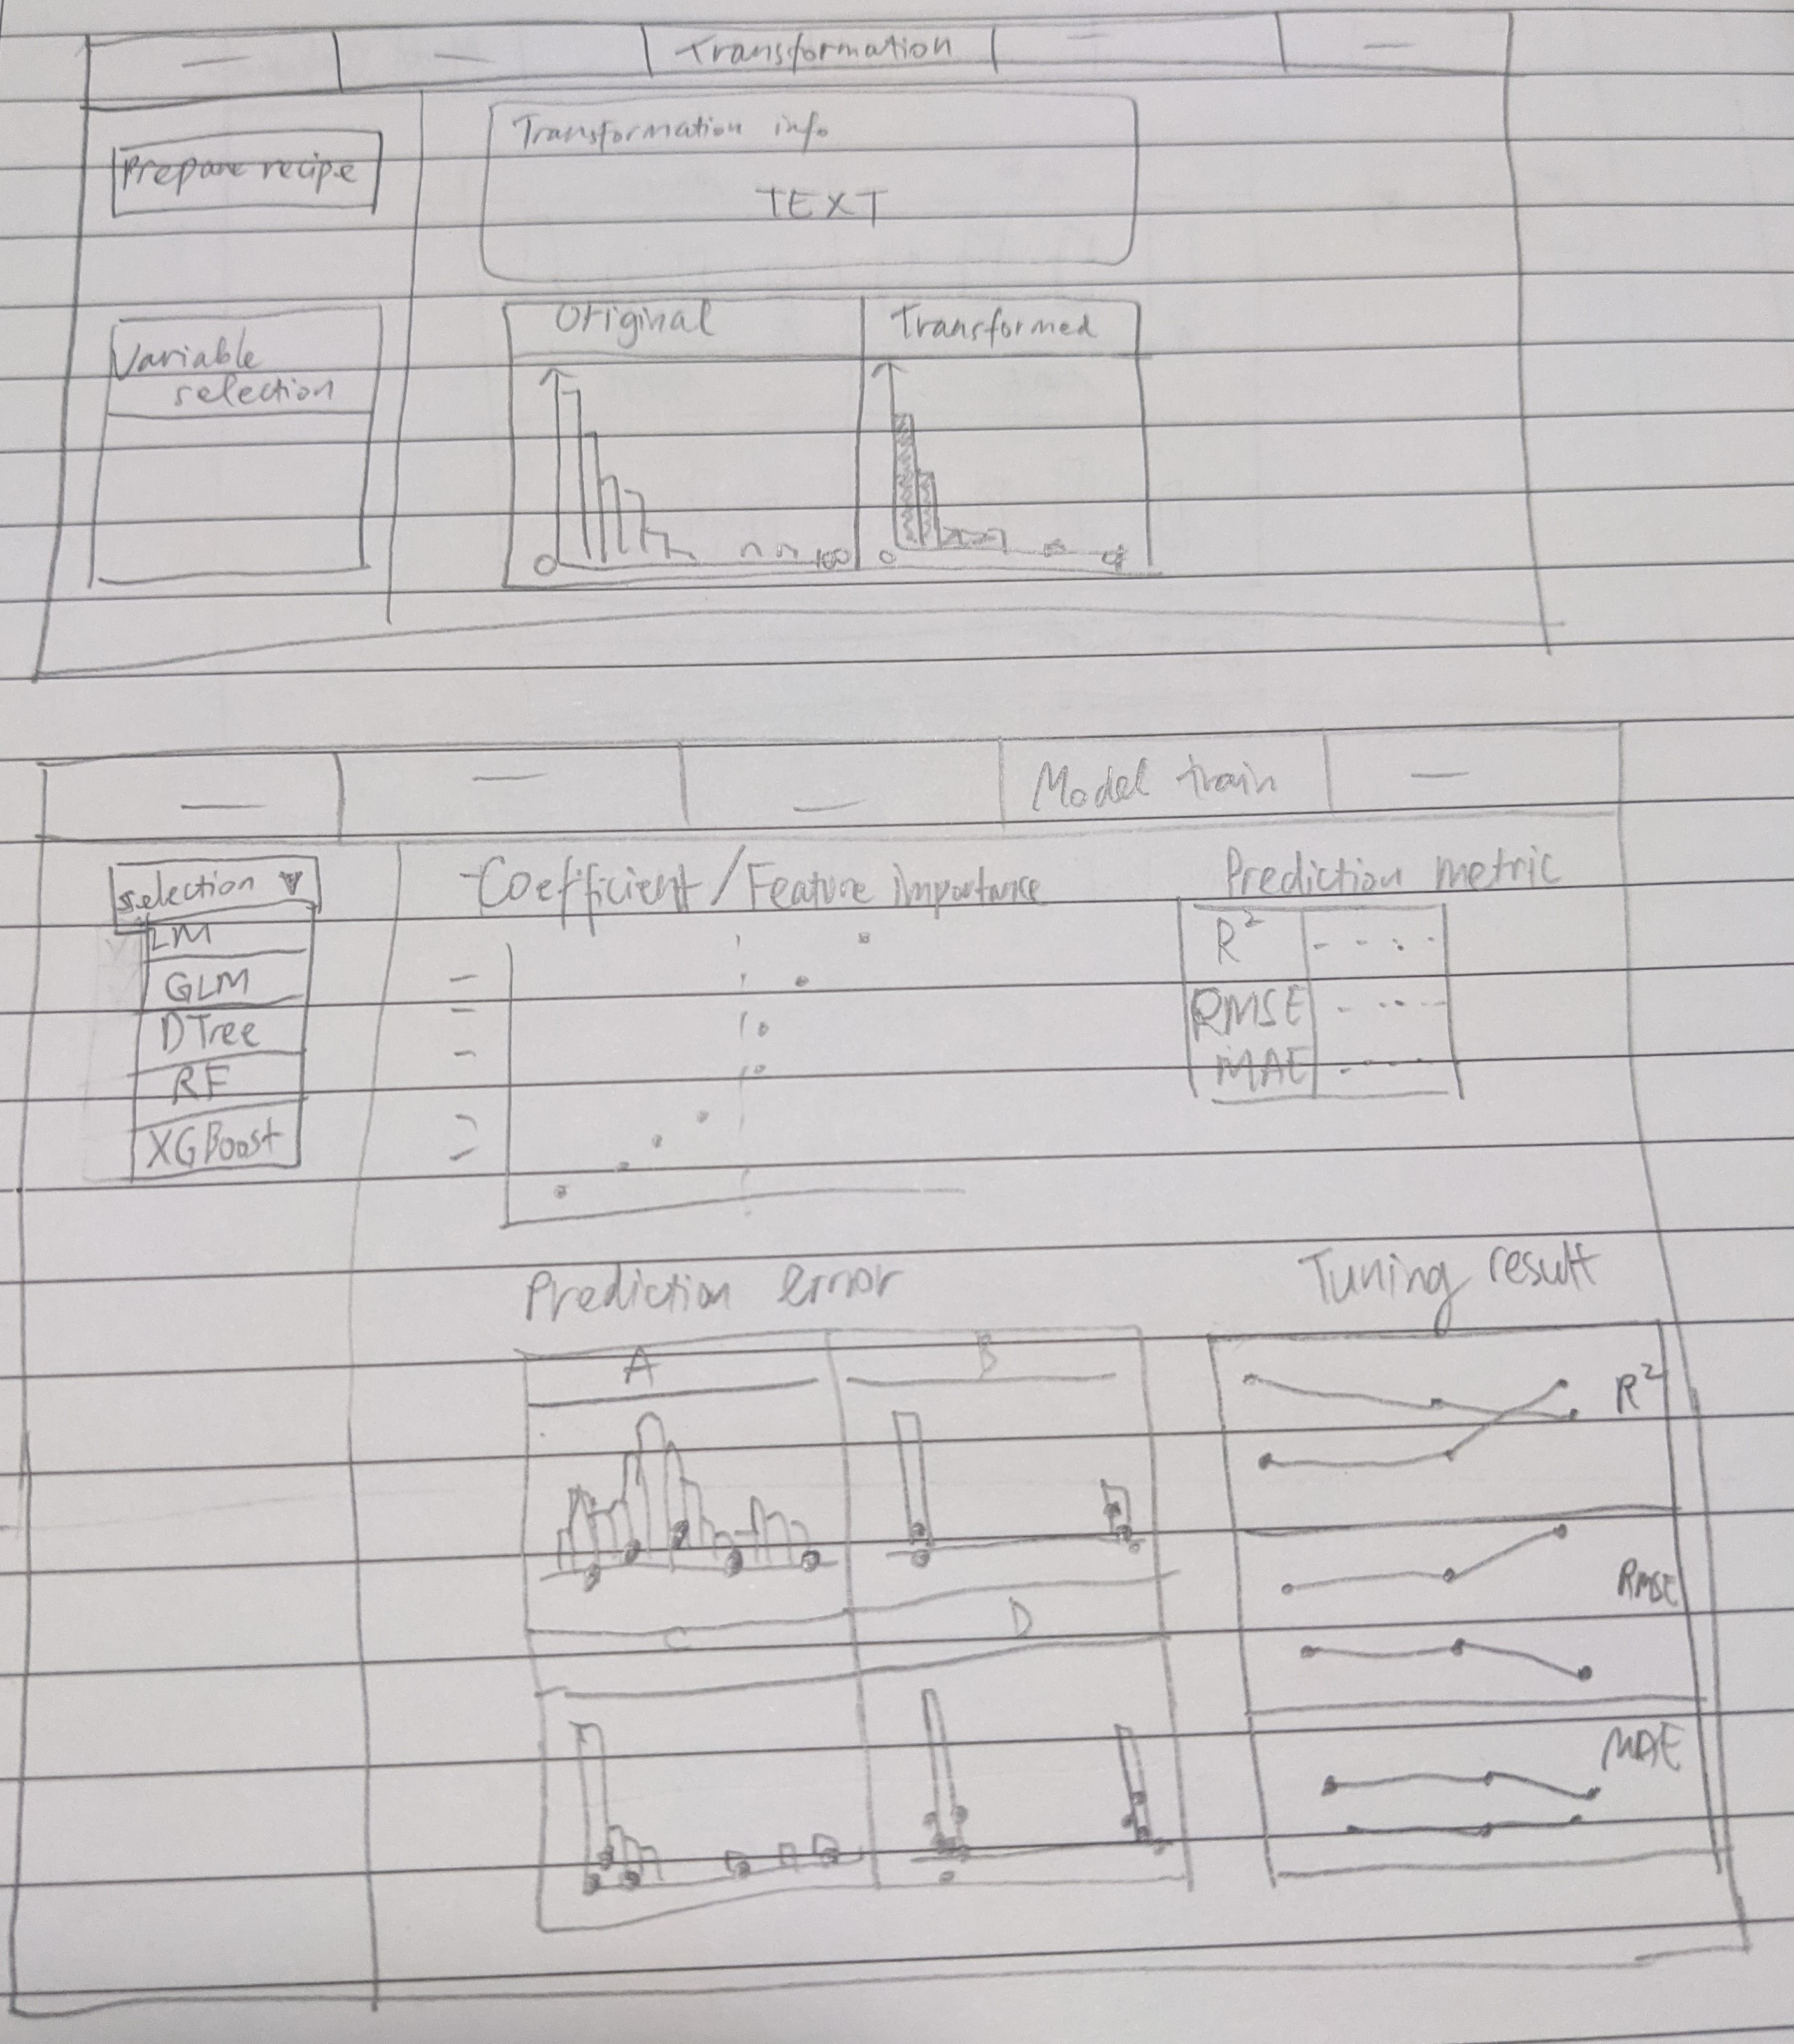 Transformation
Prepare recipe
Transformation info
TEXT
Variable
selection
Original
Transformed
0
100
0
4
Model train
selection
LM
GLM
DTree
RF
XGBoost
Coefficient / Feature importance
Prediction metric
R²
RMSE
MAE
Prediction error
A
B
C
D
Tuning result
R²
RMSE
MAE